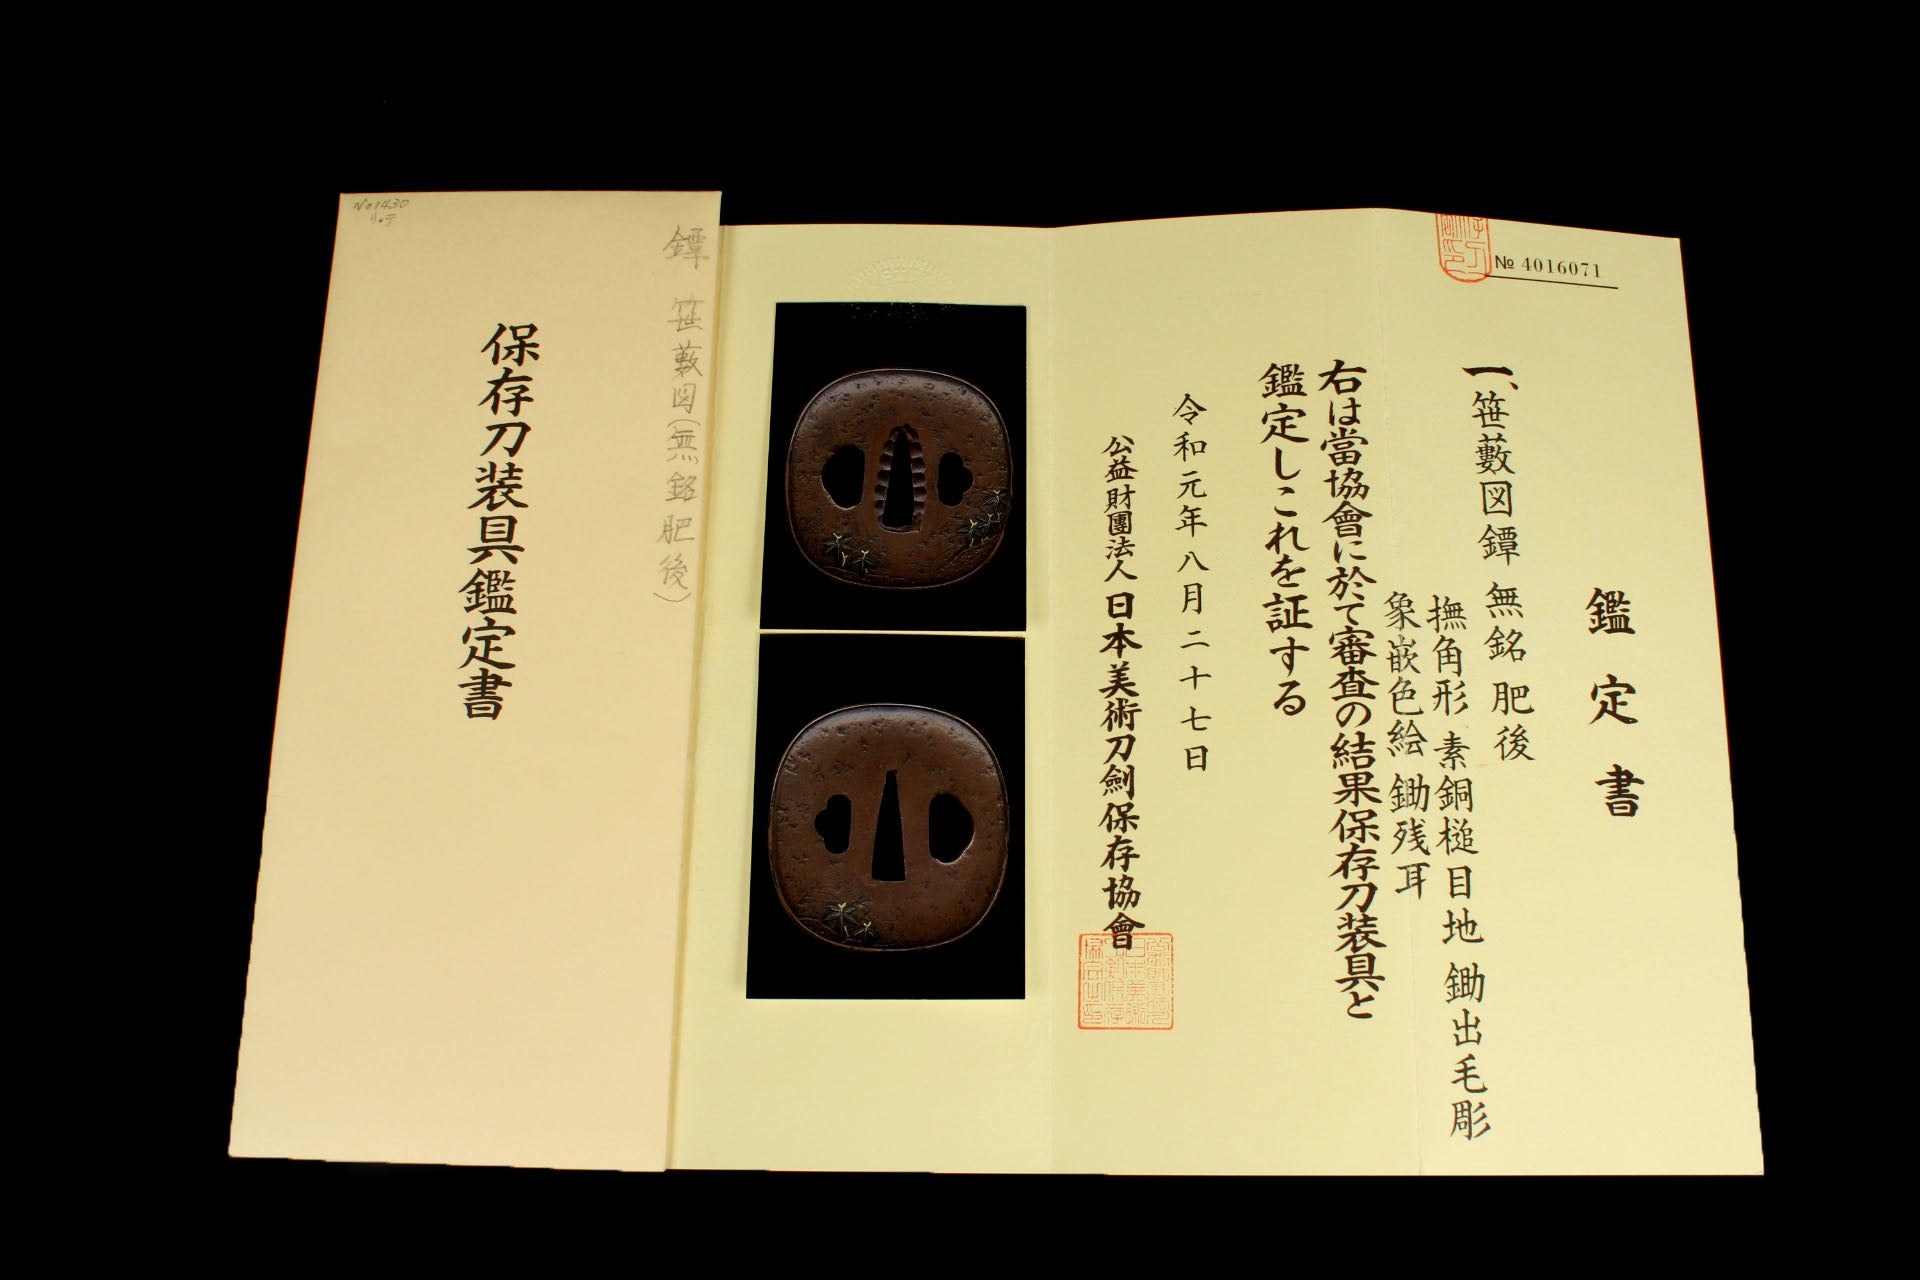 № 4016071
鑑定書
一、笹藪図鐔 無銘 肥後
撫角形 素銅槌目地 鋤出毛彫
象嵌色絵 鋤残耳
右は當協會に於て審査の結果保存刀装具と
鑑定しこれを証する
令和元年八月二十七日
公益財團法人 日本美術刀劍保存協會
No1430
鐔 笹藪図(無銘肥後)
保存刀装具鑑定書